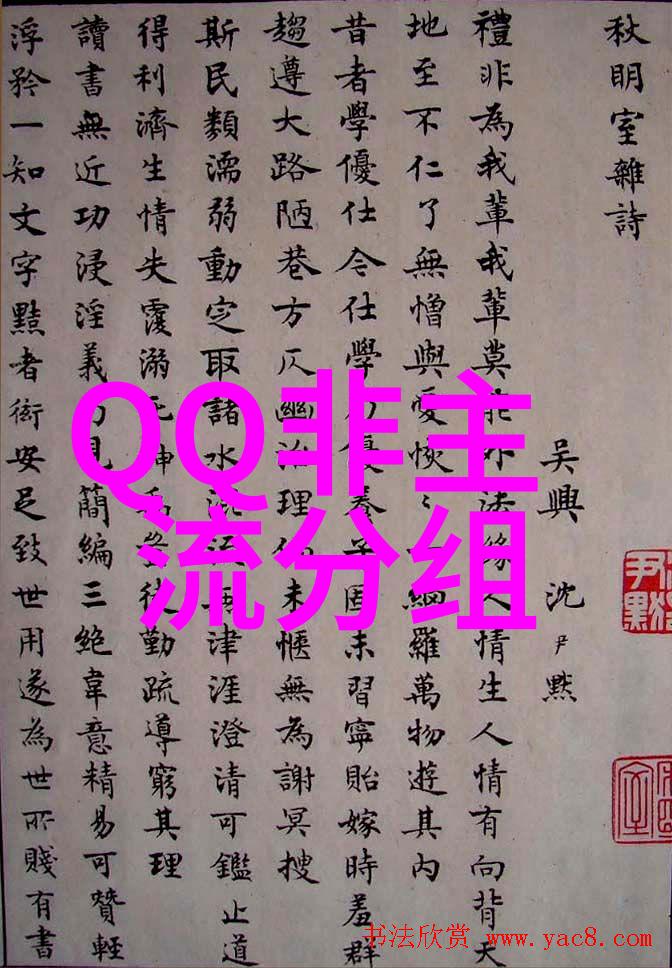 秋明室雜詩
吴興 沈尹默
禮非為我輩我輩莫能外法緣人情生人情有向背天
地至不仁了無憎與愛恢恢一網羅萬物遊其内
昔者學優仕今仕學乃優養子固未習寧貽嫁時羞群
趨遵大路陋巷方仄幽治理化未愜無為謝冥搜
斯民類濡弱動定取諸水流津涯澄清可鑑止道
得利濟生情失覆溺死神禹登徒勤疏導窮其理
讀書無近功浸淫義乃見簡編三絶韋意精易可贊輕
浮矜一知文字黠者衒安足致世用遂為世所賤有書
QQ非主
流分组
尹默
书法欣赏 www.yac8.com